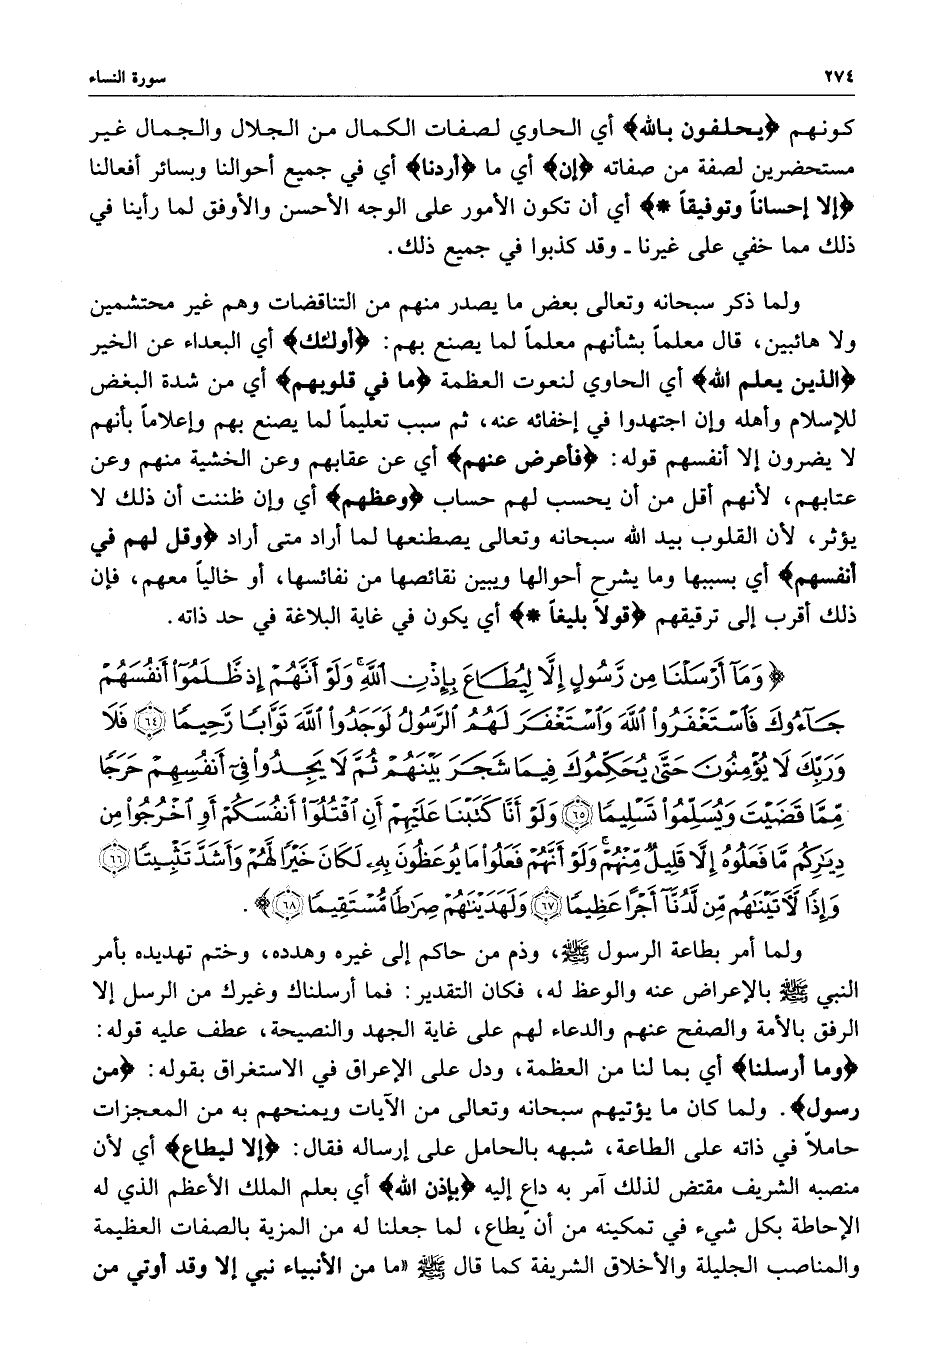 ٢٧٤ سورة النساء
كونهم ﴿يحلفون بالله﴾ أي الحاوي لصفات الكمال من الجلال والجمال غير
مستحضرين لصفة من صفاته ﴿إن﴾ أي ما ﴿أردنا﴾ أي في جميع أحوالنا وبسائر أفعالنا
﴿إلا إحساناً وتوفيقاً *﴾ أي أن تكون الأمور على الوجه الأحسن والأوفق لما رأينا في
ذلك مما خفي على غيرنا ـ وقد كذبوا في جميع ذلك.
ولما ذكر سبحانه وتعالى بعض ما يصدر منهم من التناقضات وهم غير محتشمين
ولا هائبين، قال معلماً بشأنهم معلماً لما يصنع بهم: ﴿أولئك﴾ أي البعداء عن الخير
﴿الذين يعلم الله﴾ أي الحاوي لنعوت العظمة ﴿ما في قلوبهم﴾ أي من شدة البغض
للإسلام وأهله وإن اجتهدوا في إخفائه عنه، ثم سبب تعليماً لما يصنع بهم وإعلاماً بأنهم
لا يضرون إلا أنفسهم قوله: ﴿فأعرض عنهم﴾ أي عن عقابهم وعن الخشية منهم وعن
عتابهم، لأنهم أقل من أن يحسب لهم حساب ﴿وعظهم﴾ أي وإن ظننت أن ذلك لا
يؤثر، لأن القلوب بيد الله سبحانه وتعالى يصطنعها لما أراد متى أراد ﴿وقل لهم في
أنفسهم﴾ أي بسببها وما يشرح أحوالها ويبين نقائصها من نفائسها، أو خالياً معهم، فإن
ذلك أقرب إلى ترقيقهم ﴿قولاً بليغاً *﴾ أي يكون في غاية البلاغة في حد ذاته.
﴿ وَمَآ أَرْسَلْنَا مِن رَّسُولٍ إِلَّا لِيُطَاعَ بِإِذْنِ ٱللَّهِ ۚ وَلَوْ أَنَّهُمْ إِذ ظَّلَمُوٓا۟ أَنفُسَهُمْ
جَآءُوكَ فَٱسْتَغْفَرُوا۟ ٱللَّهَ وَٱسْتَغْفَرَ لَهُمُ ٱلرَّسُولُ لَوَجَدُوا۟ ٱللَّهَ تَوَّابًا رَّحِيمًا ﴿٦٤﴾ فَلَا
وَرَبِّكَ لَا يُؤْمِنُونَ حَتَّىٰ يُحَكِّمُوكَ فِيمَا شَجَرَ بَيْنَهُمْ ثُمَّ لَا يَجِدُوا۟ فِىٓ أَنفُسِهِمْ حَرَجًا
مِّمَّا قَضَيْتَ وَيُسَلِّمُوا۟ تَسْلِيمًا ﴿٦٥﴾ وَلَوْ أَنَّا كَتَبْنَا عَلَيْهِمْ أَنِ ٱقْتُلُوٓا۟ أَنفُسَكُمْ أَوِ ٱخْرُجُوا۟ مِن
دِيَـٰرِكُم مَّا فَعَلُوهُ إِلَّا قَلِيلٌ مِّنْهُمْ ۖ وَلَوْ أَنَّهُمْ فَعَلُوا۟ مَا يُوعَظُونَ بِهِۦ لَكَانَ خَيْرًا لَّهُمْ وَأَشَدَّ تَثْبِيتًا ﴿٦٦﴾
وَإِذًا لَّـَٔاتَيْنَـٰهُم مِّن لَّدُنَّآ أَجْرًا عَظِيمًا ﴿٦٧﴾ وَلَهَدَيْنَـٰهُمْ صِرَٰطًا مُّسْتَقِيمًا ﴿٦٨﴾ ﴾.
ولما أمر بطاعة الرسول ﷺ، وذم من حاكم إلى غيره وهدده، وختم تهديده بأمر
النبي ﷺ بالإعراض عنه والوعظ له، فكان التقدير: فما أرسلناك وغيرك من الرسل إلا
الرفق بالأمة والصفح عنهم والدعاء لهم على غاية الجهد والنصيحة، عطف عليه قوله:
﴿وما أرسلنا﴾ أي بما لنا من العظمة، ودل على الإعراق في الاستغراق بقوله: ﴿من
رسول﴾. ولما كان ما يؤتيهم سبحانه وتعالى من الآيات ويمنحهم به من المعجزات
حاملاً في ذاته على الطاعة، شبهه بالحامل على إرساله فقال: ﴿إلا ليطاع﴾ أي لأن
منصبه الشريف مقتض لذلك آمر به داع إليه ﴿بإذن الله﴾ أي بعلم الملك الأعظم الذي له
الإحاطة بكل شيء في تمكينه من أن يطاع، لما جعلنا له من المزية بالصفات العظيمة
والمناصب الجليلة والأخلاق الشريفة كما قال ﷺ «ما من الأنبياء نبي إلا وقد أوتي من